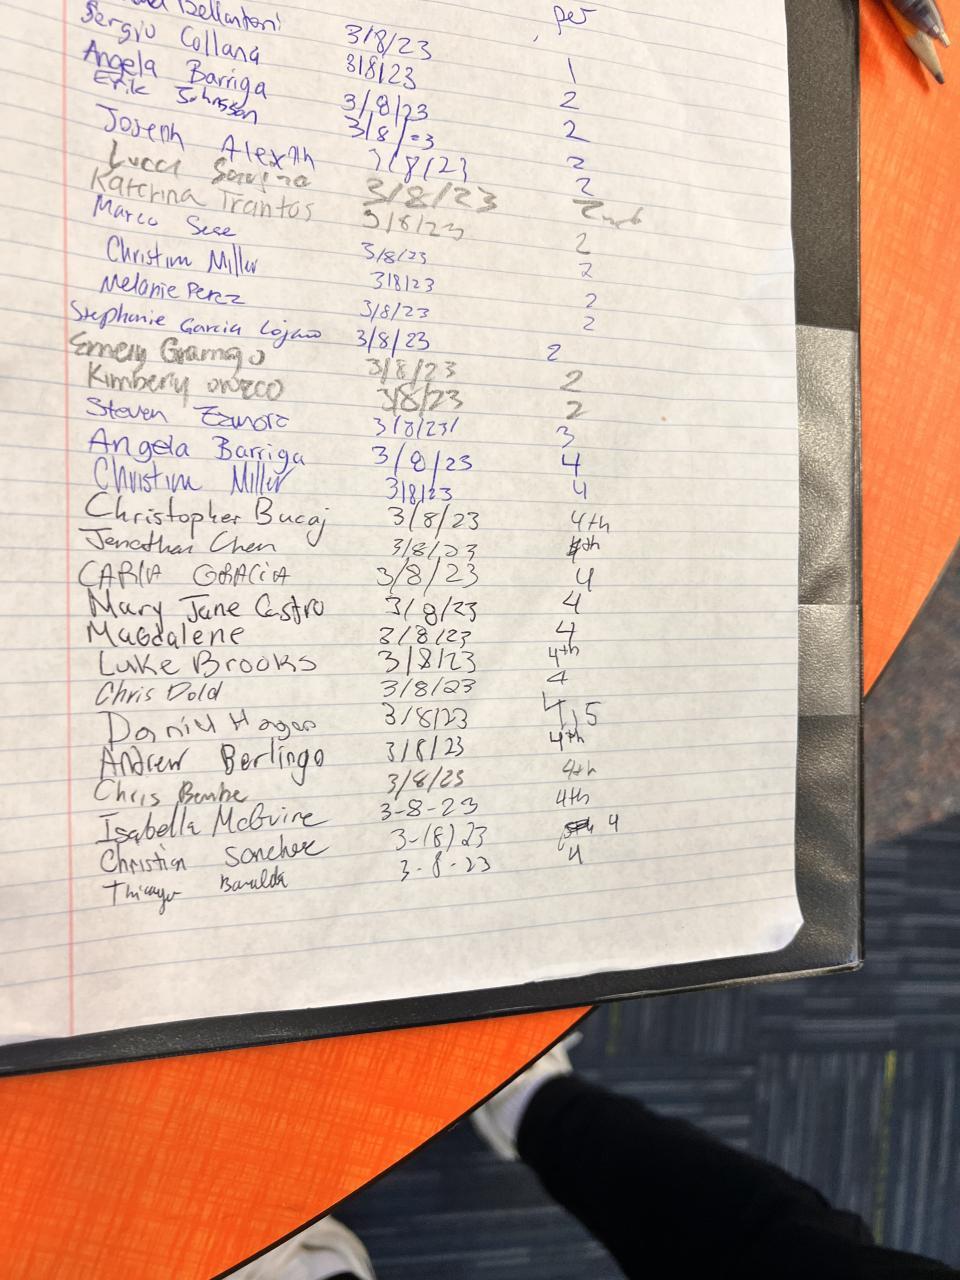 Bellantoni per
Sergio Collana 3/8/23 1
Angela Barriga 3/8/23 2
Erik Johnsson 3/8/23 2
Joseph 3/8/23 2
Lucca 3/8/23 2
Katerina Trantos 3/8/23 2nd
Marco Sese 3/8/23 2
Christian Miller 3/8/23 2
Melanie Perez 3/8/23 2
Stephanie Garcia Lojano 3/8/23 2
Emely 3/8/23 2
Kimberly orozco 3/8/23 2
Steven 3/8/23 2
Angela Barriga 3/8/23 3
Christian Miller 3/8/23 4
Christopher Bucaj 3/8/23 4
Jonathan Chen 3/8/23 4th
CARLA GRACIA 3/8/23 4th
Mary Jane Castro 3/8/23 4
Magdalene 3/8/23 4
Luke Brooks 3/8/23 4
Chris Dold 3/8/23 4th
Daniel Hogan 3/8/23 4
Andrew Berlingo 3/8/23 4,5
Chris 3/8/23 4th
Isabella McGuire 3-8-23 4th
Christian Sanchez 3-18/23 4th
Thiago 3-8-23 4
4